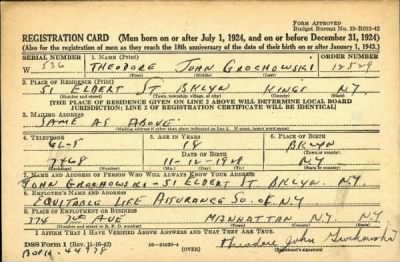 FORM APPROVED
Budget Bureau No. 33-R012-42
REGISTRATION CARD (Men born on or after July 1, 1924, and on or before December 31, 1924)
(Also for the registration of men as they reach the 18th anniversary of the date of their birth on or after January 1, 1943.)
SERIAL NUMBER 1. NAME (Print) ORDER NUMBER
W 536 THEODORE JOHN GROCHOWSKI 12529
(First) (Middle) (Last)
2. PLACE OF RESIDENCE (Print)
51 ELBERT ST BKLYN KINGS N.Y.
(Number and street) (Town, township, village, or city) (County) (State)
[THE PLACE OF RESIDENCE GIVEN ON LINE 2 ABOVE WILL DETERMINE LOCAL BOARD
JURISDICTION; LINE 2 OF REGISTRATION CERTIFICATE WILL BE IDENTICAL]
3. MAILING ADDRESS
SAME AS ABOVE
[Mailing address if other than place indicated on line 2. If same, insert word same]
4. TELEPHONE 5. AGE IN YEARS 6. PLACE OF BIRTH
GL-5 18 BKLYN
DATE OF BIRTH
7468 11-12-1924 N.Y.
7. NAME AND ADDRESS OF PERSON WHO WILL ALWAYS KNOW YOUR ADDRESS
JOHN GROCHOWSKI - 51 ELDERT ST BKLYN. N.Y.
8. EMPLOYER'S NAME AND ADDRESS
EQUITABLE LIFE ASSURANCE SO. OF N.Y.
9. PLACE OF EMPLOYMENT OR BUSINESS
AVE MANHATTAN N.Y. N.Y.
(Number and street or R. F. D. number) (Town) (County) (State)
I AFFIRM THAT I HAVE VERIFIED ABOVE ANSWERS AND THAT THEY ARE TRUE.
DSS Form 1 (Rev. 11-16-42) (OVER) Theodore John Grochowski
44778